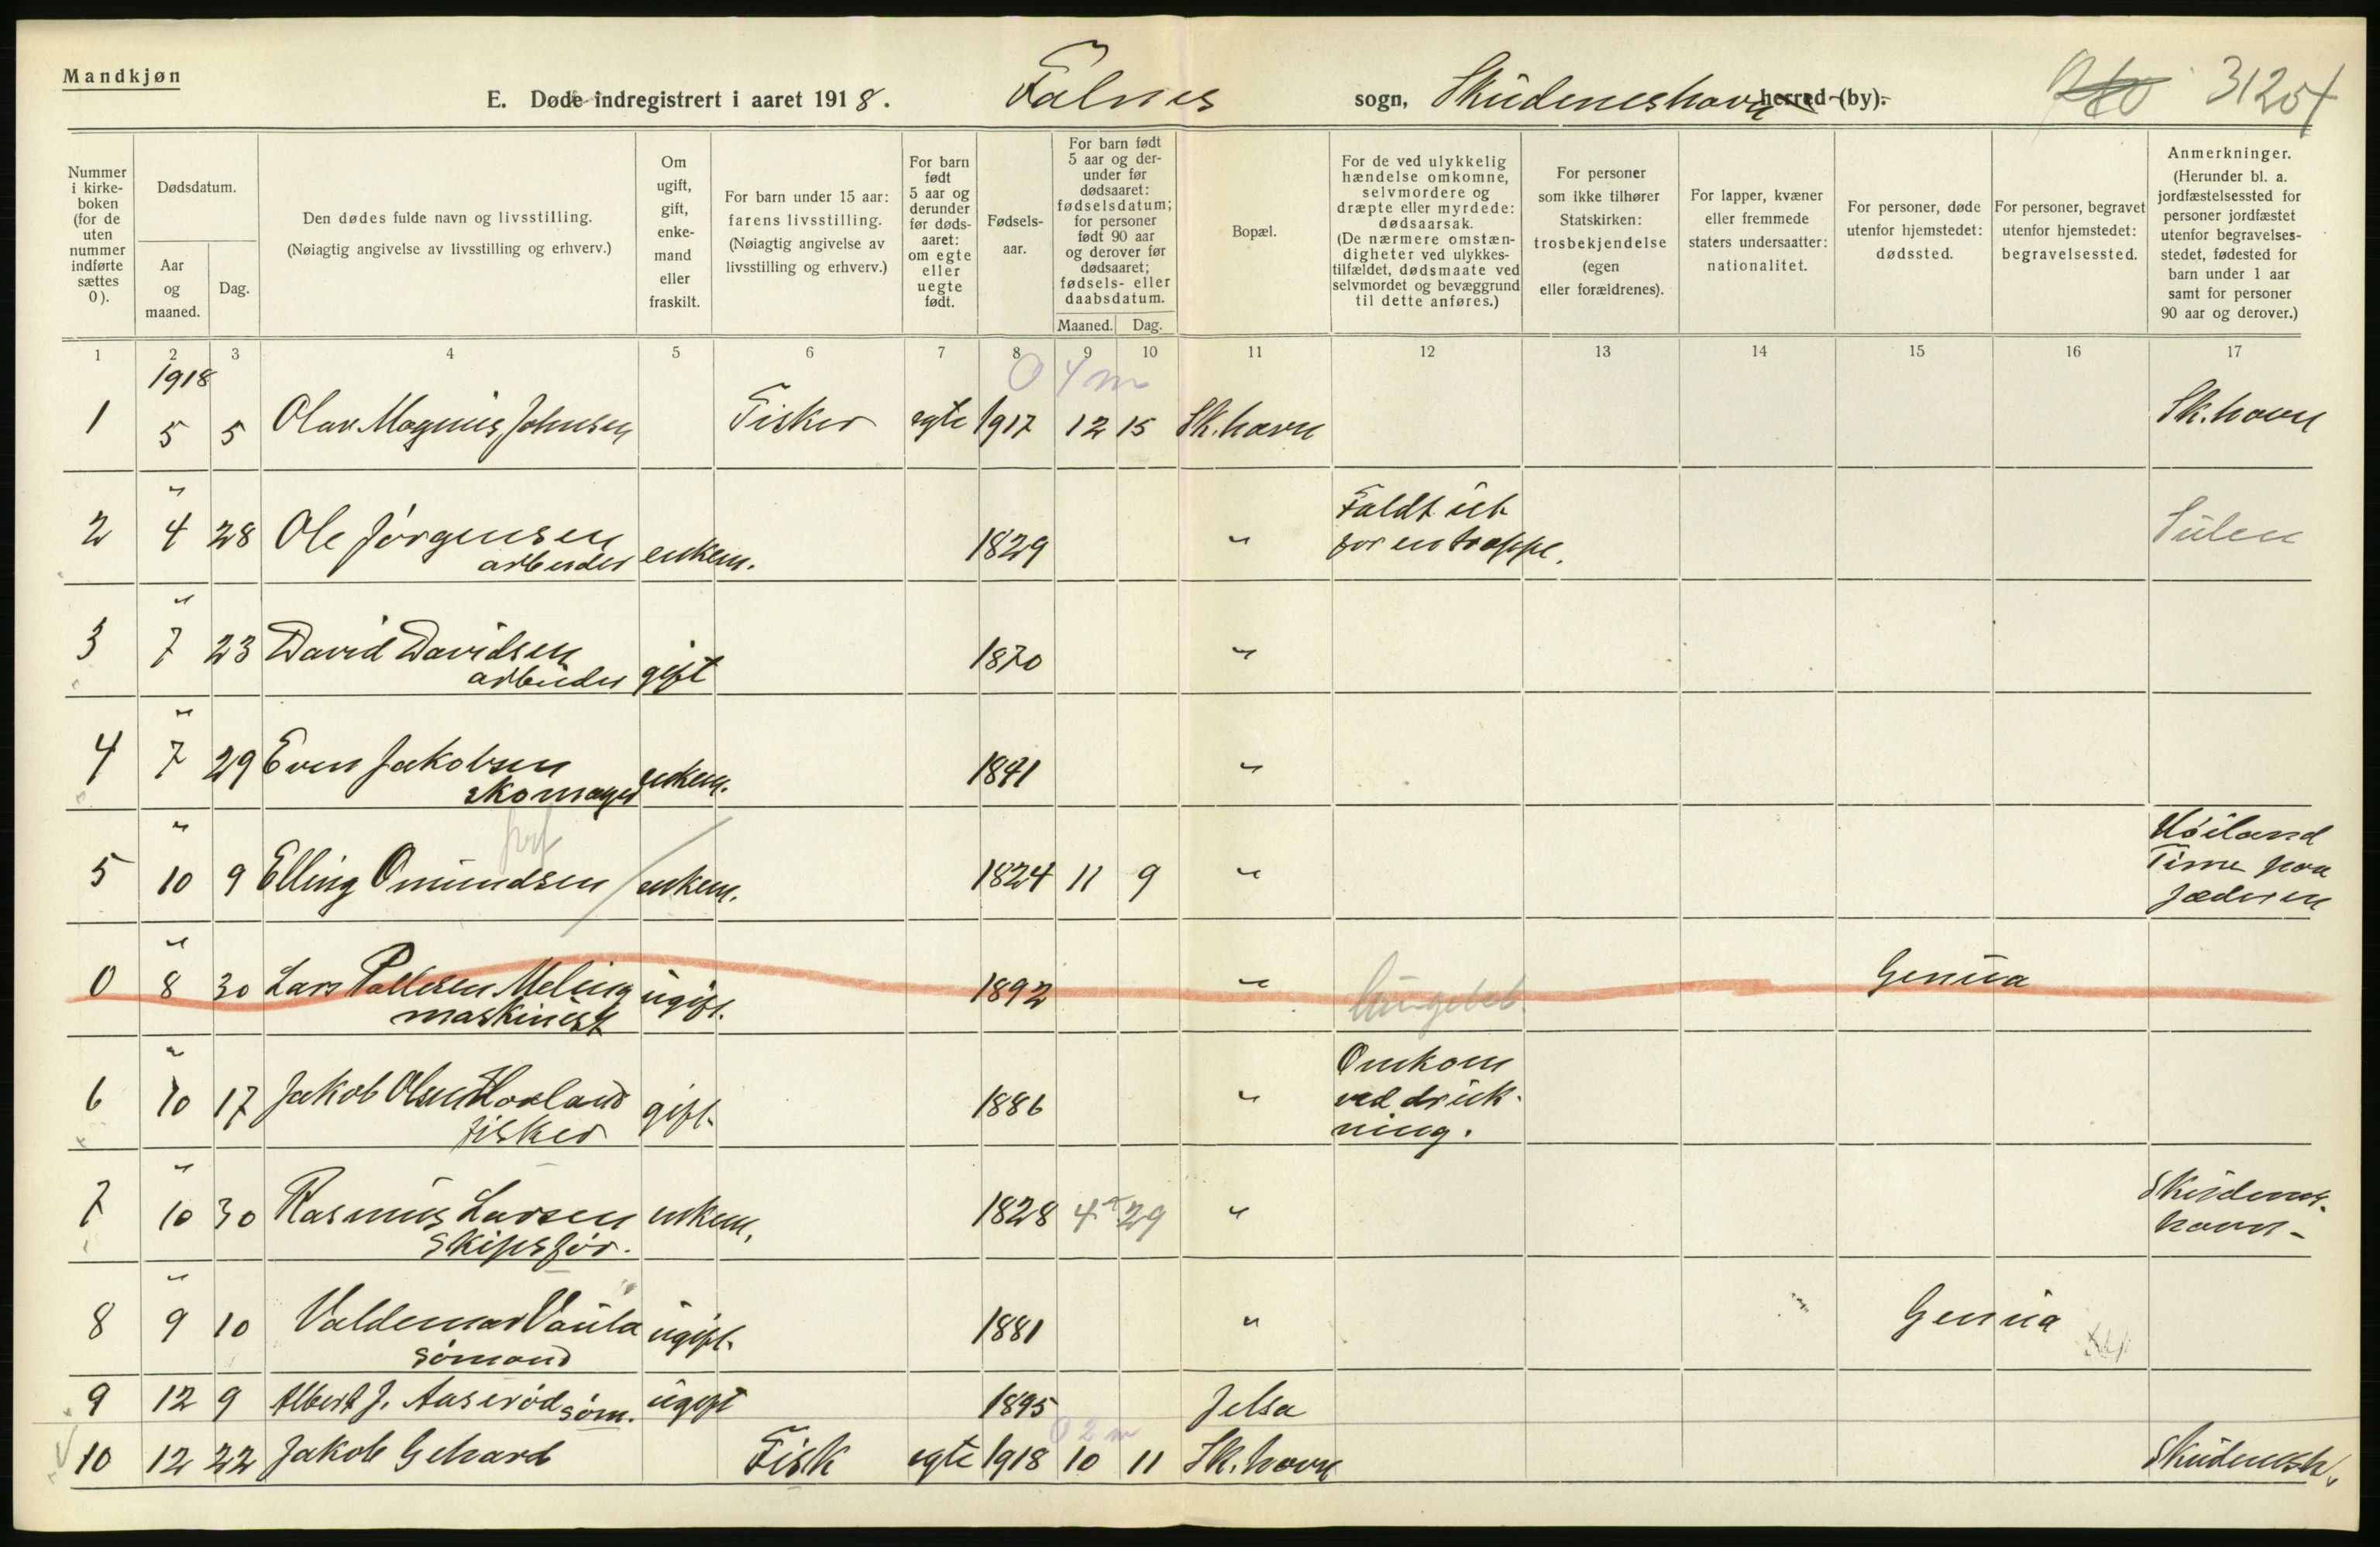 Mandkjøn
E. Døde indregistrert i aaret 1918. Falnes sogn, Skudeneshavn herred (by). 31204
Nummer i kirkeboken (for de uten nummer indførte sættes 0).
Dødsdatum.
Aar og maaned.
Dag.
Den dødes fulde navn og livsstilling.
(Nøiagtig angivelse av livsstilling og erhverv.)
Om ugift, gift, enkemand eller fraskilt.
For barn under 15 aar: farens livsstilling. (Nøiagtig angivelse av livsstilling og erhverv.)
For barn født 5 aar og derunder før dødsaaret: om egte eller uegte født.
Fødselsaar.
For barn født 5 aar og derunder før dødsaaret: fødselsdatum; for personer født 90 aar og derover før dødsaaret; fødsels- eller daabsdatum.
Maaned. Dag.
Bopæl.
For de ved ulykkelig hændelse omkomne, selvmordere og dræpte eller myrdede: dødsaarsak. (De nærmere omstændigheter ved ulykkestilfældet, dødsmaate ved selvmordet og bevæggrund til dette anføres.)
For personer som ikke tilhører Statskirken: trosbekjendelse (egen eller forældrenes).
For lapper, kvæner eller fremmede staters undersaatter: nationalitet.
For personer, døde utenfor hjemstedet: dødssted.
For personer, begravet utenfor hjemstedet: begravelsessted.
Anmerkninger. (Herunder bl. a. jordfæstelsessted for personer jordfæstet utenfor begravelsesstedet, fødested for barn under 1 aar samt for personer 90 aar og derover.)
1 2 3 4 5 6 7 8 9 10 11 12 13 14 15 16 17
1918 0 4 m
1 5 5 Olav Magnus Johnsen Fisker egte 1917 12 15 Sk.havn Sk.havn
"
2 4 28 Ole Jørgensen arbeider enkem. 1829 " Faldt ut for en trappe. Sulen
"
3 7 23 David Davidsen arbeider gift 1870 "
"
4 7 29 Even Jakobsen skomager enkem. 1841 "
"
5 10 9 Elling Omundsen enkem. 1824 11 9 " Høiland Time paa Jæderen
"
0 8 30 Lars Pallesen Meling maskinist ugift. 1892 " lungebet. Genua
"
6 10 17 Jakob Olsen Hovland fisker gift. 1886 " Omkom ved drukning.
"
7 10 30 Rasmus Larsen skipsfør. enkem. 1828 4 29 " Skudeneshavn
"
8 9 10 Valdemar Vaula sømand ugift. 1881 " Genua
9 12 9 Albert J. Aaserød søm. ugift 1895 Jelsa
0 2 m
10 12 22 Jakob Gehard Fisk egte 1918 10 11 Sk.havn Skudenesh.